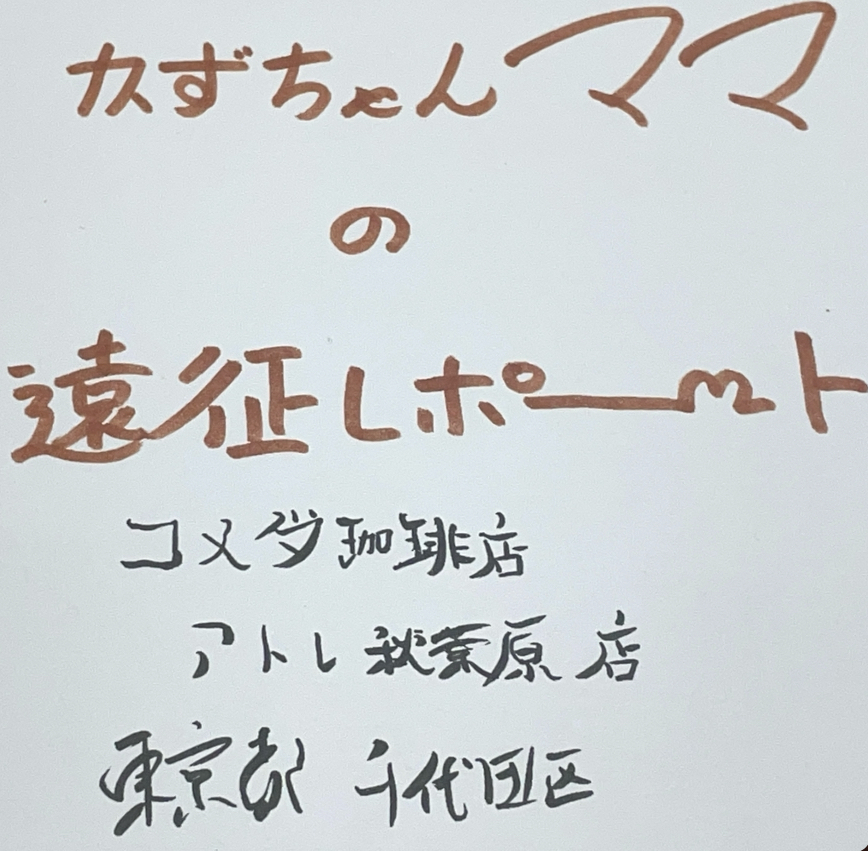 かずちゃんママ
の
遠征レポート
コメダ珈琲店
アトレ秋葉原店
東京都 千代田区